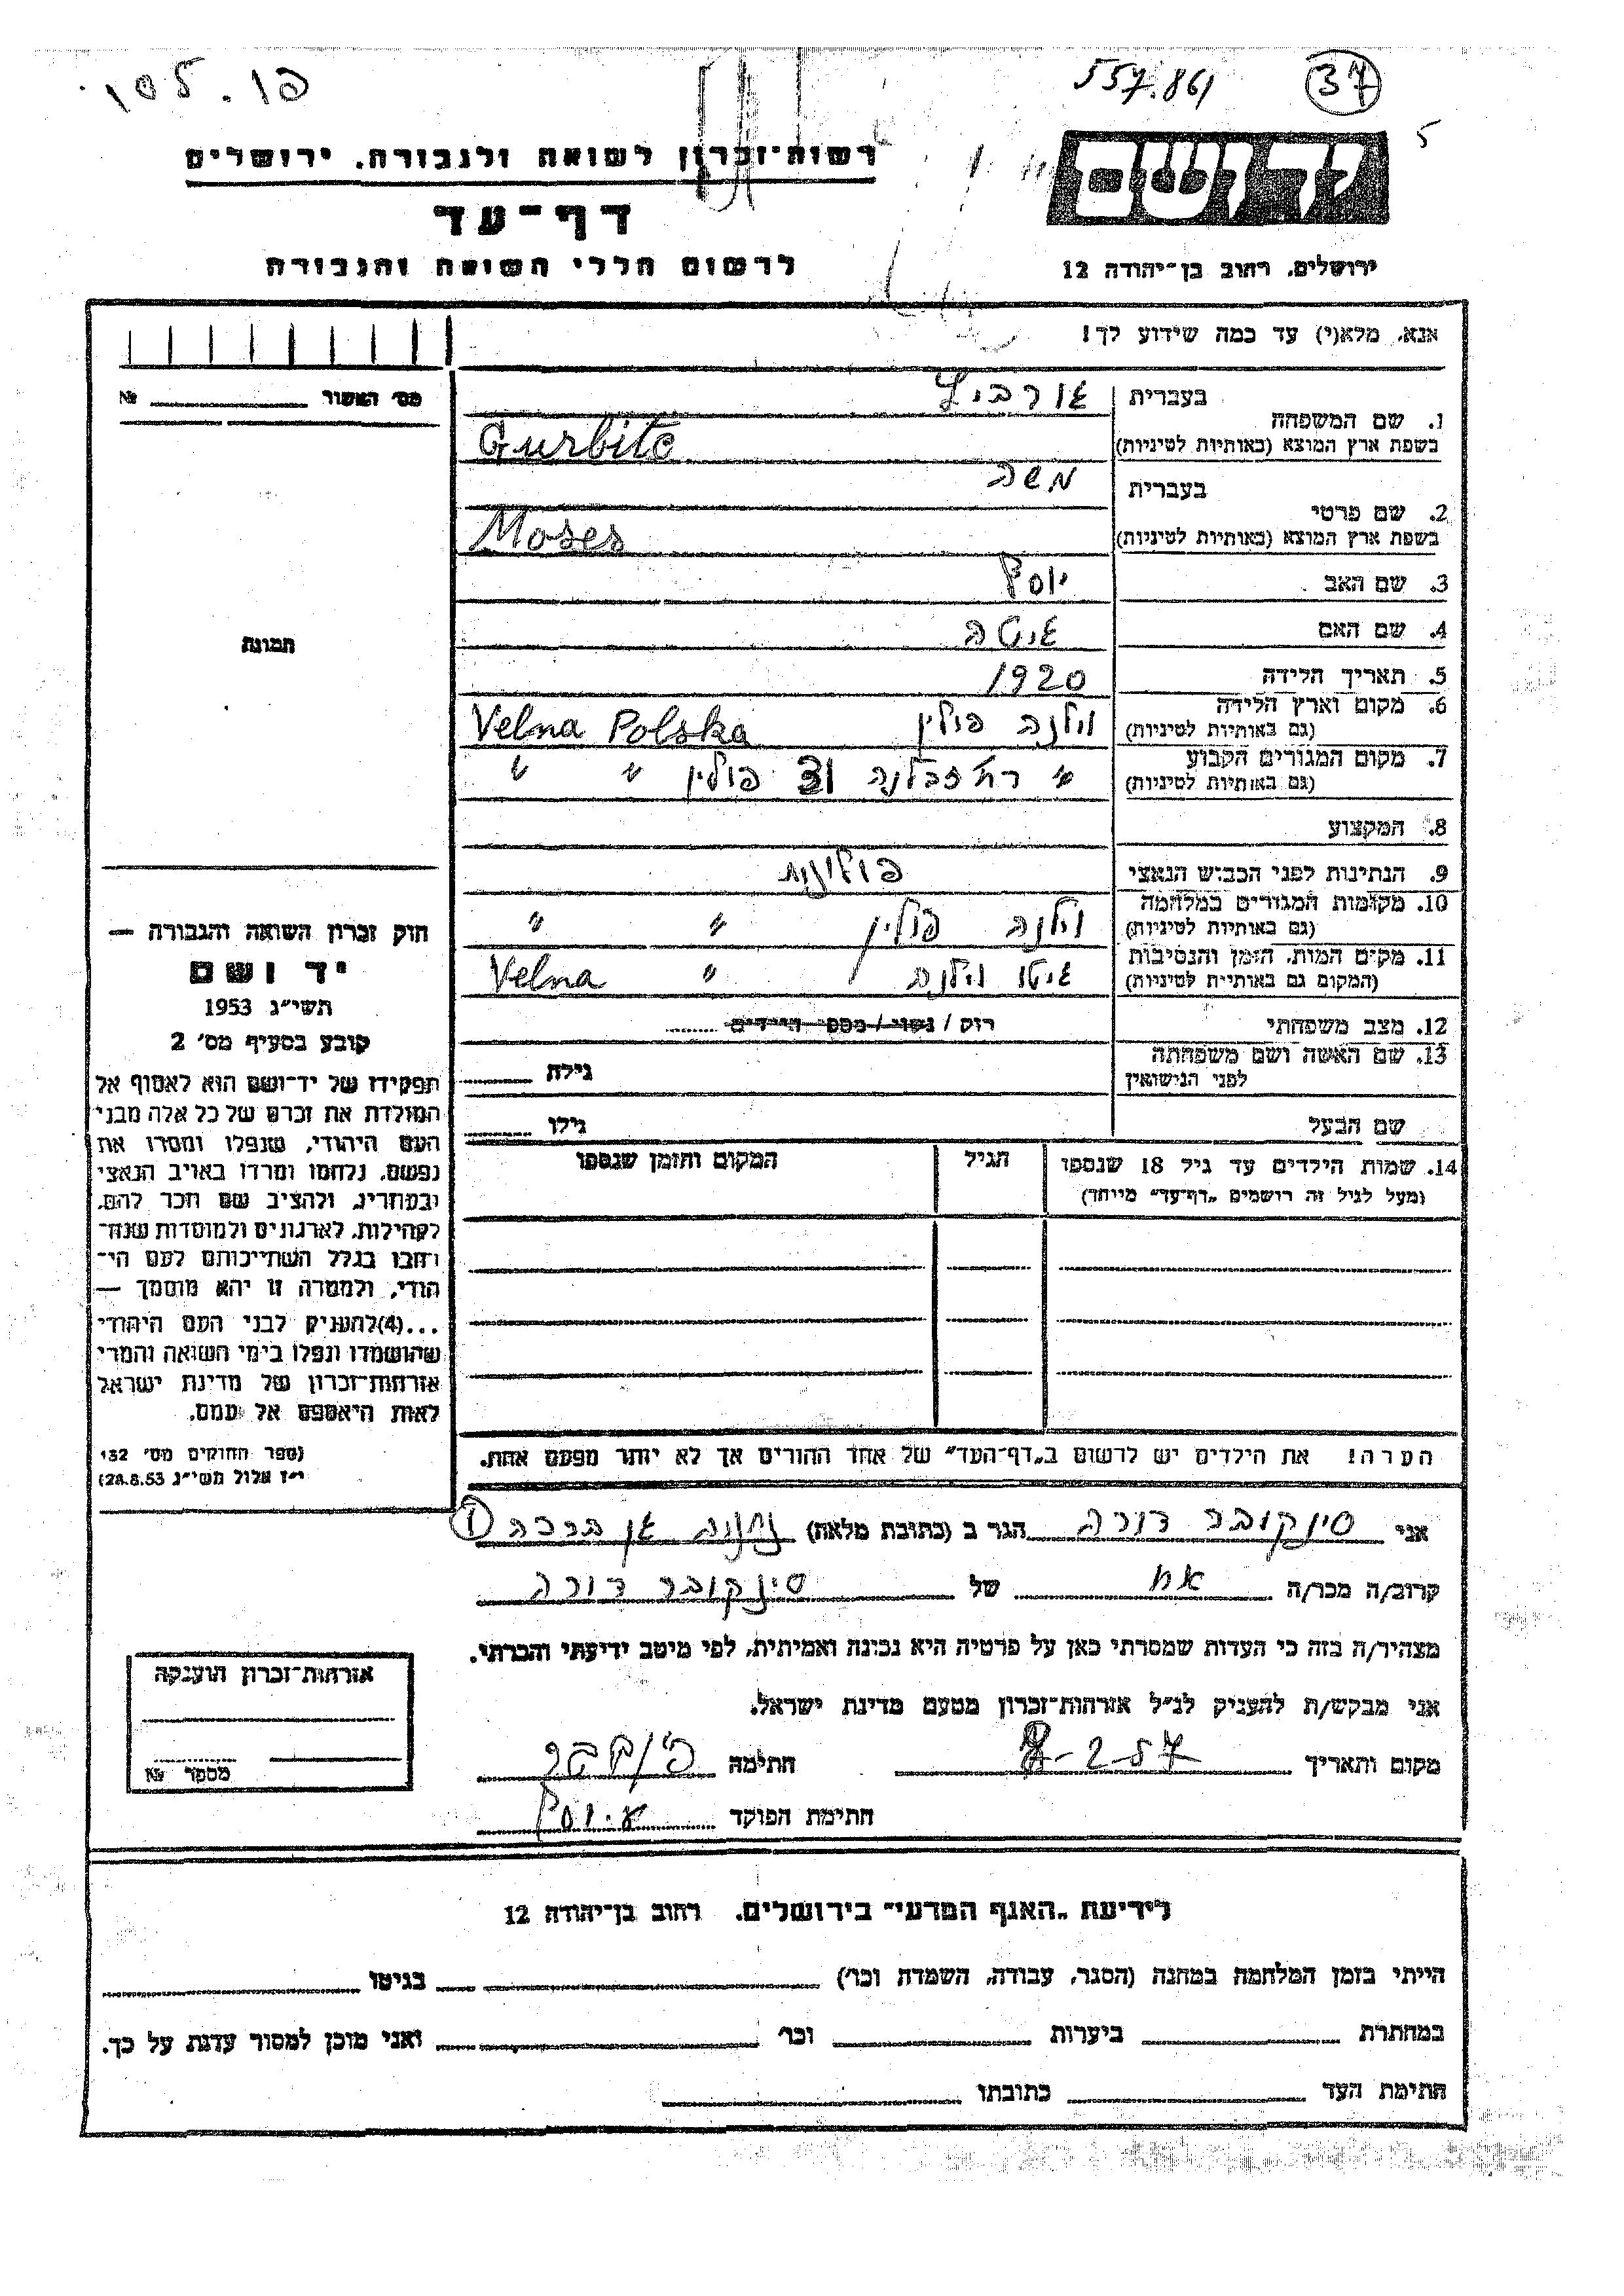 557.861 37
5
רשות־זכרון לשואה ולגבורה. ירושלים
דף־עד
לרשום חללי השואה והגבורה
ירושלים, רחוב בן־יהודה 12
אנא, מלא(י) עד כמה שידוע לך!
מס׳ האשור № 
1. שם המשפחה בעברית
בשפת ארץ המוצא (באותיות לטיניות) Gurbitc
2. שם פרטי בעברית משה
בשפת ארץ המוצא (באותיות לטיניות) Moses
3. שם האב יוסף
4. שם האם
5. תאריך הלידה 1920
6. מקום וארץ הלידה (גם באותיות לטיניות) וילנה פולין Velna Polska
7. מקום המגורים הקבוע (גם באותיות לטיניות) " רח׳ פולין " "
8. המקצוע
9. הנתינות לפני הכבוש הנאצי פולינית
10. מקומות המגורים במלחמה (גם באותיות לטיניות) וילנה פולין " "
11. מקום המות, הזמן והנסיבות (המקום גם באותיות לטיניות) גיטו וילנה " Velna
12. מצב משפחתי רוק / נשוי / מספר הילדים
13. שם האשה ושם משפחתה לפני הנישואין גילה
שם הבעל גילו
14. שמות הילדים עד גיל 18 שנספו הגיל המקום והזמן שנספו
(מעל לגיל זה רושמים „דף־עד" מיוחד)
הערה! את הילדים יש לרשום ב„דף־העד" של אחד ההורים אך לא יותר מפעם אחת.
תמונה
חוק זכרון השואה והגבורה —
יד ושם
תשי״ג 1953
קובע בסעיף מס׳ 2
תפקידו של יד־ושם הוא לאסוף אל
המולדת את זכרם של כל אלה מבני
העם היהודי, שנפלו ומסרו את
נפשם, נלחמו ומרדו באויב הנאצי
ובעוזריו, ולהציב שם וזכר להם,
לקהילות, לארגונים ולמוסדות שנח־
רבו בגלל השתייכותם לעם הי־
הודי, ולמטרה זו יהא מוסמך —
...(4)להעניק לבני העם היהודי
שהושמדו ונפלו בימי השואה והמרי
אזרחות־זכרון של מדינת ישראל
לאות היאספם אל עמם.
(ספר החוקים מס׳ 132
י״ז אלול תשי״ג 28.8.53)
אני סינקובר דורה הגר ב (כתובת מלאה)
קרוב/ה מכר/ה אח של סינקובר דורה
מצהיר/ה בזה כי העדות שמסרתי כאן על פרטיה היא נכונה ואמיתית, לפי מיטב ידיעתי והכרתי.
אני מבקש/ת להעניק לנ״ל אזרחות־זכרון מטעם מדינת ישראל.
מקום ותאריך חתימה
חתימת הפוקד
אזרחות־זכרון הוענקה
מספר №
לידיעת „האגף המדעי" בירושלים. רחוב בן־יהודה 12
הייתי בזמן המלחמה במחנה (הסגר, עבודה, השמדה וכו׳) בגיטו
במחתרת ביערות וכו׳ ואני מוכן למסור עדות על כך.
חתימת העד כתובתו